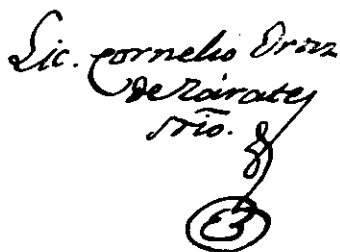 Lic. Cornelio Ortiz
de Zárate,
srio.